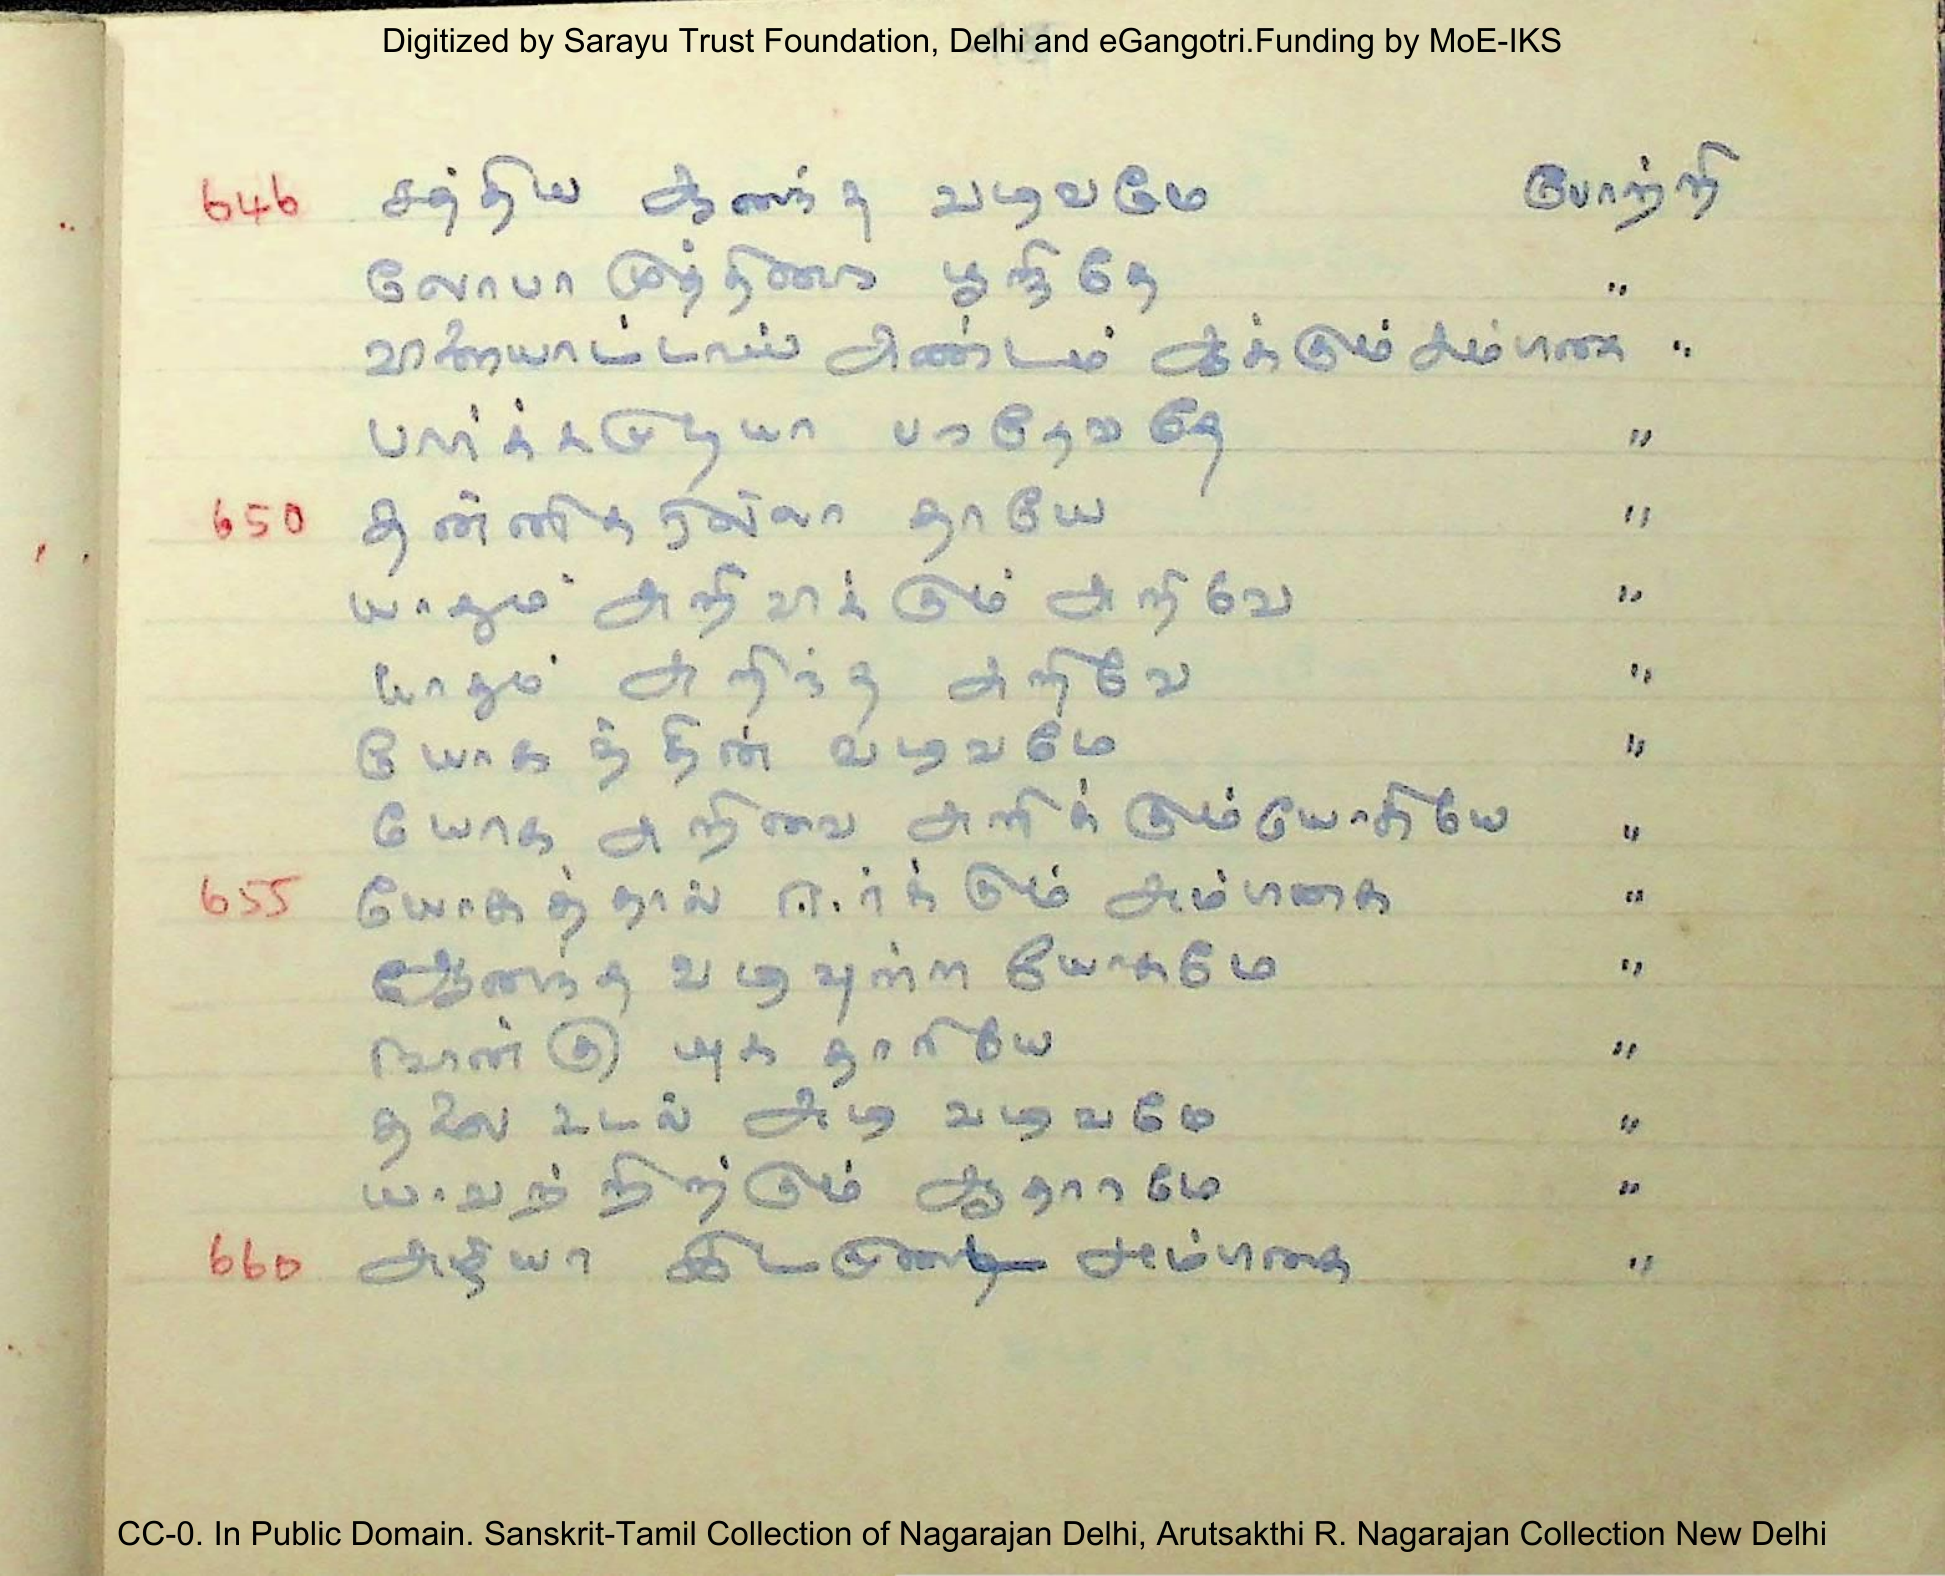 Digitized by Sarayu Trust Foundation, Delhi and eGangotri.Funding by MoE-IKS
646 சத்திய ஆனந்த வடிவமே போற்றி
லோபா முத்திரை பூசிதே "
விளையாட்டாய் அண்டம் ஆக்கும் அம்பிகை "
பார்க்கமுடியா பரதேவதே "
650 தன்னிகரில்லா தாயே "
யாதும் அறிவிக்கும் அறிவே "
யாதும் அறிந்த அறிவே "
யோகத்தின் வடிவமே "
யோக அறிவை அளிக்கும் யோகியே "
655 யோகத்தால் ஈர்க்கும் அம்பிகை "
ஆனந்த வடிவுற்ற யோகமே "
நான்கு யுக தாரியே "
தலை உடல் அடி வடிவமே "
யாவற்றிற்கும் ஆதாரமே "
660 அழியா அம்பிகை "
CC-0. In Public Domain. Sanskrit-Tamil Collection of Nagarajan Delhi, Arutsakthi R. Nagarajan Collection New Delhi